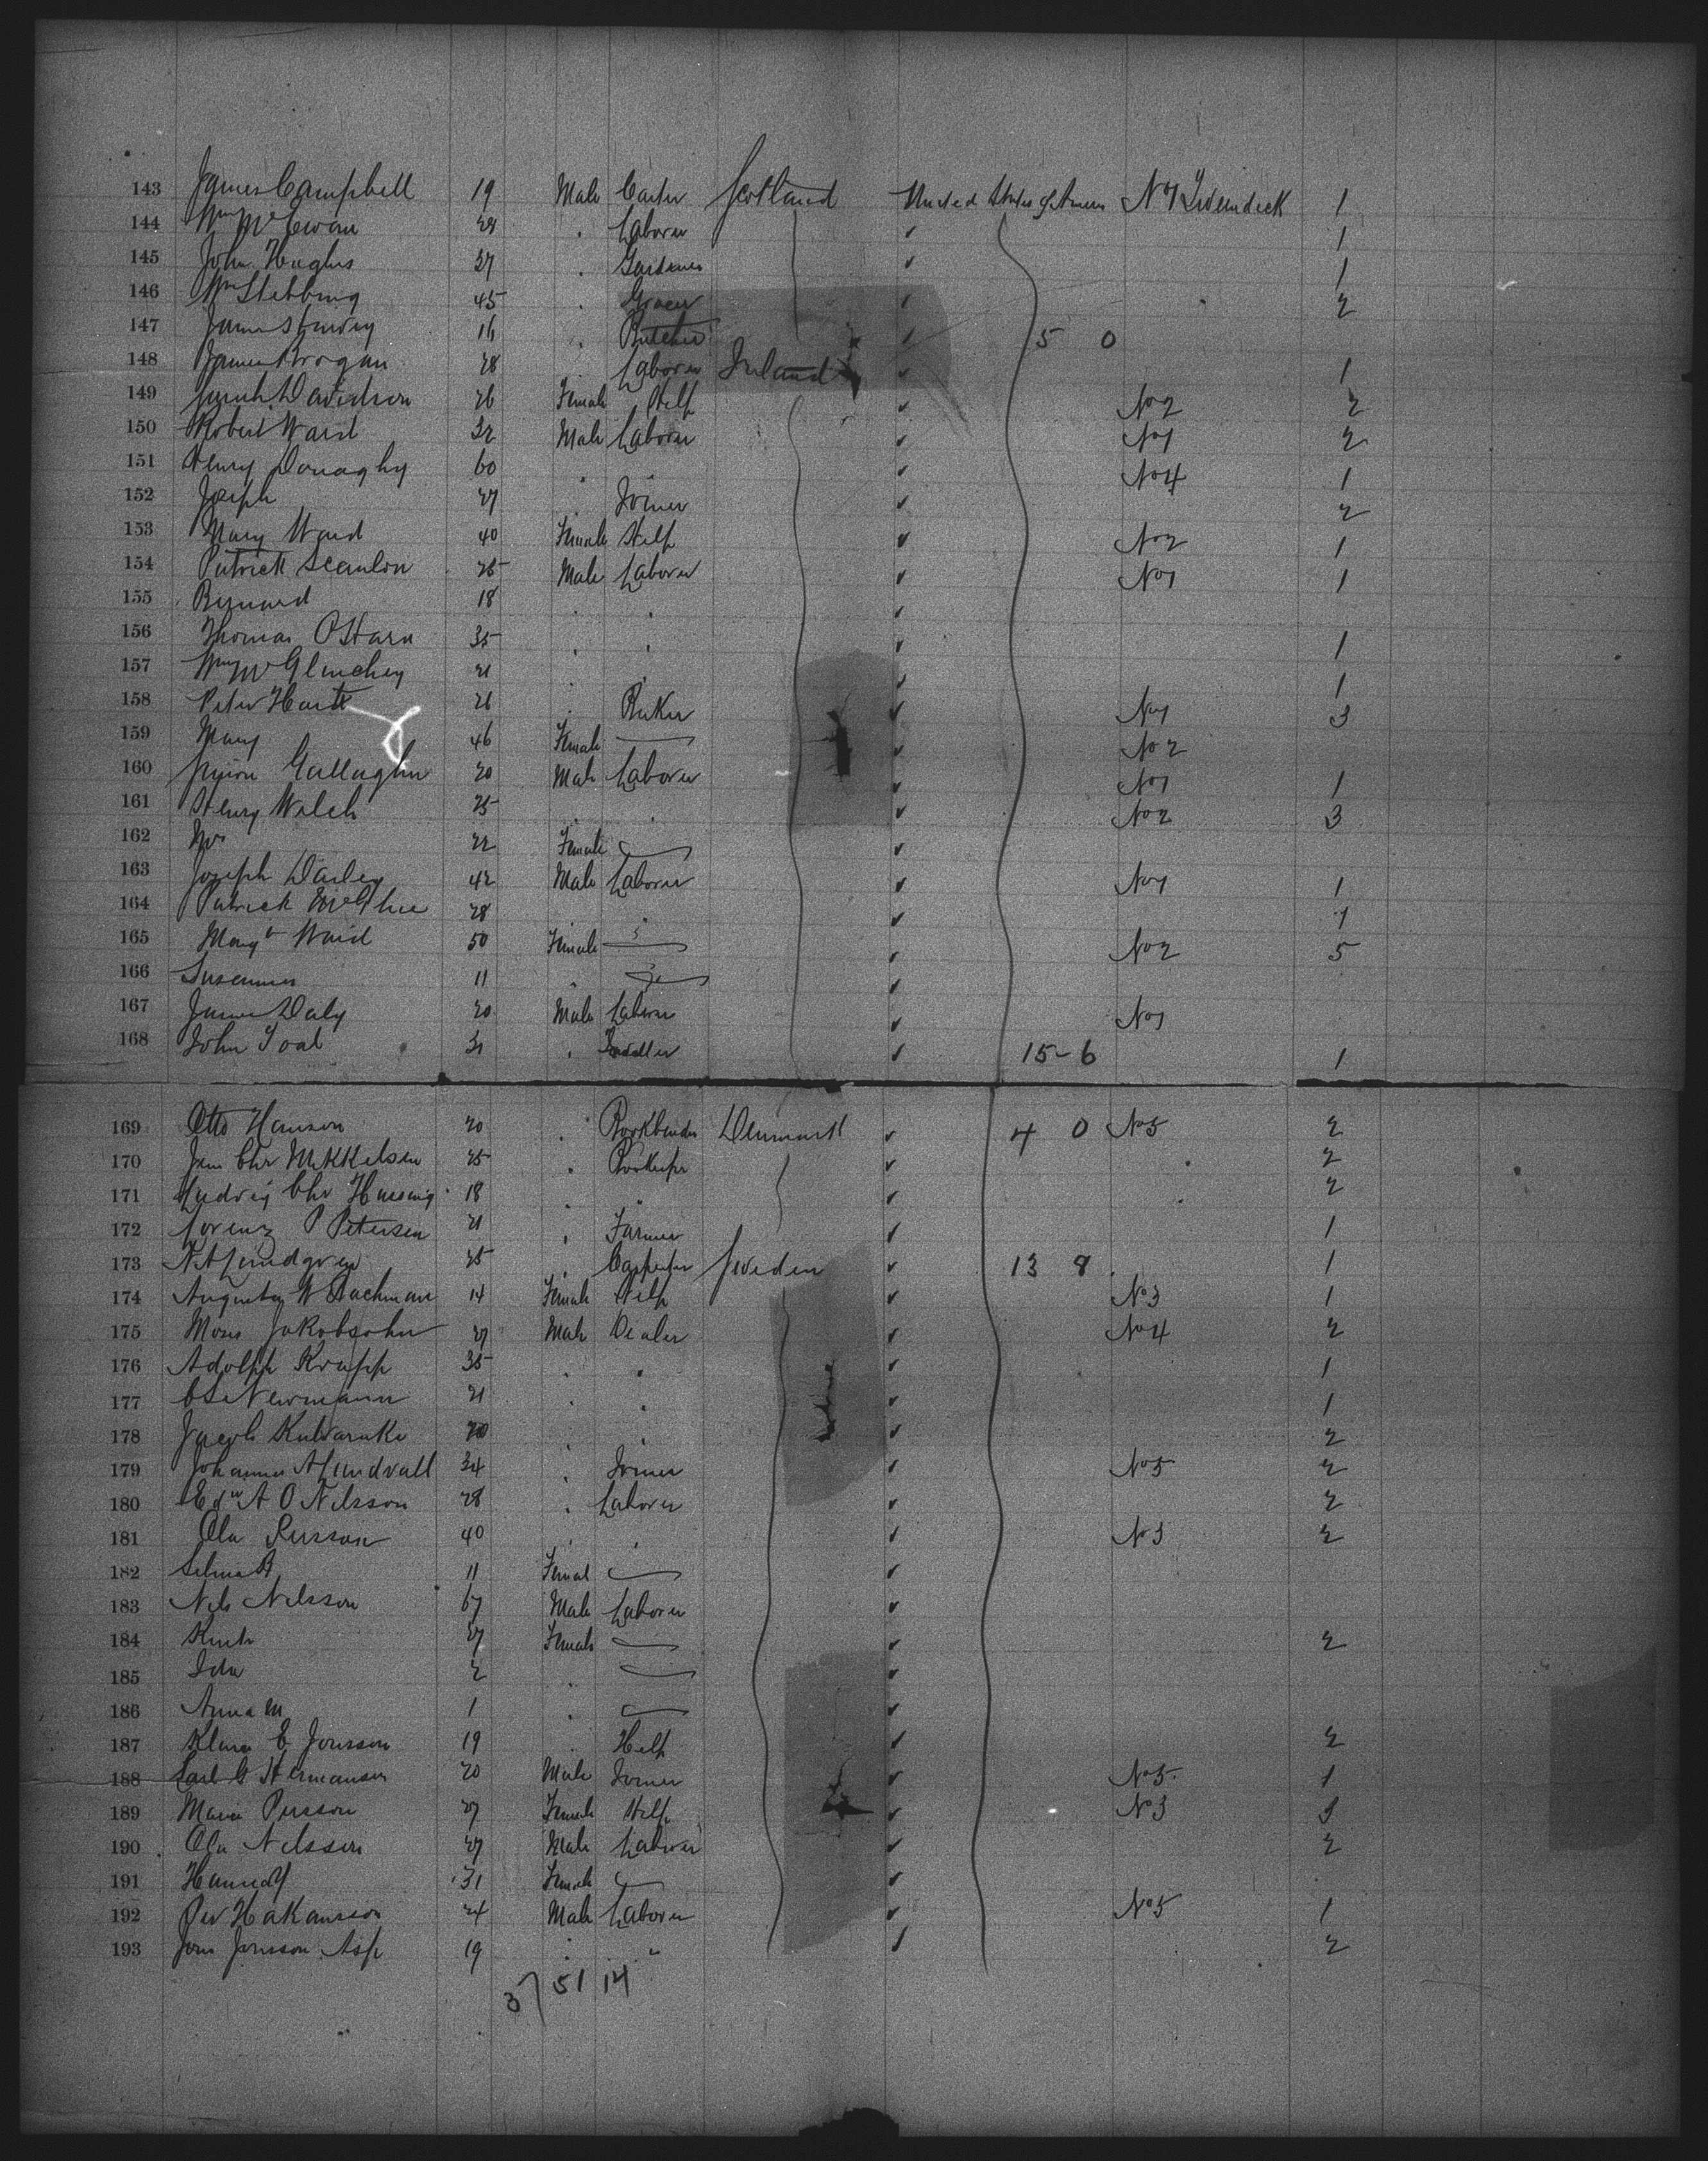 143 James Campbell 19 Male Carter Scotland United States of America No 1 Tweendeck 1
144 Wm McEwan 29 " Laborer ✓ 1
145 John Hughes 27 " Gardener ✓ 1
146 Wm Stebbing 45 " Grocer ✓ 2
147 James 16 " Butcher ✓ 5 0
148 James Brogan 28 " Laborer Ireland ✓ 1
149 Sarah Davidson 26 Female Help ✓ No 2 2
150 Robert Ward 32 Male Laborer ✓ No 1 2
151 Henry Donaghy 60 " " ✓ No 4 1
152 Joseph 27 " Joiner ✓ 2
153 Mary Ward 40 Female Help ✓ No 2 1
154 Patrick Scanlon 25 Male Laborer ✓ No 1 1
155 Bernard 18 " " ✓
156 Thomas OHara 35 " " ✓ 1
157 Wm McGlinchey 21 " " ✓ 1
158 Peter Harte 26 " Baker ✓ No 1 3
159 Mary 46 Female — ✓ No 2
160 Gallagher 20 Male Laborer ✓ No 1 1
161 Henry Welch 25 " " ✓ No 2 3
162 Mrs 22 Female — ✓
163 Joseph Darley 42 Male Laborer ✓ No 1 1
164 Patrick McGhee 28 " " ✓ 1
165 Margt Ward 50 Female — ✓ No 2 5
166 Susanna 11 " — ✓
167 James Daly 20 Male Laborer ✓ No 1
168 John Toal 31 " ✓ 15-6 1
169 Otto Hansen 20 " Bookbinder Denmark ✓ 4 0 No 5 2
170 Jens Chr Mikkelsen 25 " Bookkeeper ✓ 2
171 Ludvig Chr 18 " " ✓ 2
172 Lorenz P Petersen 21 " Farmer ✓ 1
173 N A Lundgren 25 " Carpenter Sweden ✓ 13 8 1
174 Augusta W Bachman 14 Female Help ✓ No 3 1
175 Moses Jakobsohn 27 Male Dealer ✓ No 4 2
176 Adolph Krapp 35 " " ✓ 1
177 Newmann 21 " " ✓ 1
178 Jacob 20 " " ✓ 2
179 Johannes A Lundvall 34 " Joiner ✓ No 5 2
180 Edw A O Nilsson 28 " Laborer ✓ 2
181 Ola Persson 40 " " ✓ No 3 2
182 Selma B 11 Female — ✓
183 Nils Nilsson 67 Male Laborer ✓
184 27 Female — ✓ 2
185 Ida 2 " — ✓
186 Anna M 1 " — ✓
187 Klara E Jonsson 19 " Help ✓ 2
188 Carl G Hermansen 20 Male Joiner ✓ No 5 1
189 Maria Persson 27 Female Help ✓ No 3 3
190 Ola Nilsson 27 Male Laborer ✓ 2
191 Hanna 31 Female — ✓
192 Per Hakansson 24 Male Laborer ✓ No 5 1
193 Jons Jonsson Asp 19 " " ✓ 2
37 51 14